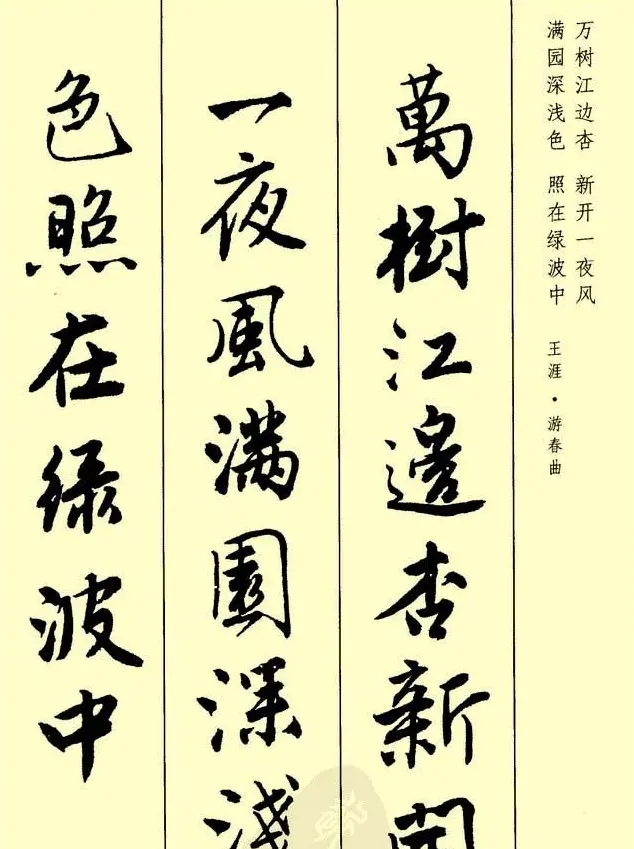 万树江边杏 新开一夜风
满园深浅色 照在绿波中
王涯·游春曲
萬樹江邊杏新開
一夜風滿園深淺
色照在绿波中